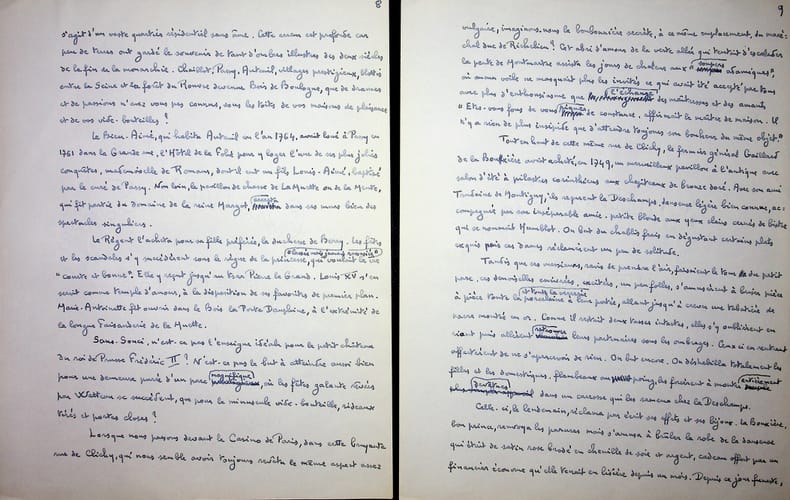 8
s'agit d'un vaste quartier résidentiel sans âme. Cette erreur est profonde car
peu de terres ont gardé le souvenir de tant d'ombres illustres des deux siècles
de la fin de la monarchie. Chaillot, Passy, Auteuil, villages prestigieux, blottis
entre la Seine et la forêt du Rouvre devenue Bois de Boulogne, que de drames
et de passions n'avez vous pas connus, sous les toits de vos maisons de plaisance
et de vos vide-bouteilles ?
Le Bien-Aimé, qui habita Auteuil en l'an 1764, avait loué à Passy en
1761 dans la Grande rue, l'Hôtel de la Folie pour y loger l'une de ses plus jolies
conquêtes, mademoiselle de Romans, dont il eut un fils Louis-Aimé, baptisé
par le curé de Passy. Non loin, le pavillon de chasse de La Muette ou de la Meute,
qui fit partie du domaine de la reine Margot, accepta dans ses murs bien des
spectacles singuliers.
Le Régent l'acheta pour sa fille préférée, la duchesse de Berry. Les fêtes
et les scandales s'y succédèrent sous le règne de la princesse, qui voulait la vie
"courte et bonne". Elle y reçut jusqu'au tsar Pierre le Grand. Louis XV s'en
servit comme temple d'amour, à la disposition de ses favorites de premier plan.
Marie-Antoinette fit ouvrir dans le Bois la Porte Dauphine, à l'extrémité de
la longue Faisanderie de la Muette.
Sans-Souci, n'est-ce pas l'enseigne idéale pour le petit château
du roi de Prusse Frédéric II ? N'est-ce pas le but à atteindre aussi bien
pour une demeure parée d'un parc magnifique, où les fêtes galantes rêvées
par Watteau se succèdent, que pour la minuscule vide-bouteille, rideaux
tirés et portes closes ?
Lorsque nous passons devant le Casino de Paris, dans cette bruyante
rue de Clichy, qui nous semble avoir toujours revêtu le même aspect assez
9
vulgaire, imaginons-nous la bonbonnière secrète, à ce même emplacement, du maré-
chal duc de Richelieu ? Cet abri d'amour de la verte allée qui tentait d'escalader
la pente de Montmartre assista les jours de chaleur aux "soupers adamiques",
où aucun voile ne masquait plus les invités et qui avait été accepté par tous
avec plus d'enthousiasme que l'échange des maîtresses et des amants
"Etes-vous fous de vous piquer de constance, affirmait le maître de maison. Il
n'y a rien de plus insipide que d'attendre toujours son bonheur du même objet."
Tout en haut de cette même rue de Clichy, le fermier général Gaillard
de la Bouëxière avait acheté, en 1749, un merveilleux pavillon à l'antique avec
salon d'été à pilastres corinthiens aux chapiteaux de bronze doré. Avec son ami
de Montigny, ils reçurent la Deschamps, danseuse légère bien connue, ac-
compagnée par son inséparable amie, petite blonde aux yeux clairs cernés de bistre
qui se nommait Humblot. On but du chablis frais en dégustant certains plats
exquis puis ces dames réclamèrent un peu de solitude.
Tandis que ces messieurs, ravis de prendre l'air, faisaient le tour du petit
parc, ces demoiselles énivrées, excitées, un peu folles, s'amusèrent à briser pièce
à pièce toute la porcelaine et toute la verrerie à leur portée, allant jusqu'à crever une tabatière de
nacre montée en or. Comme il restait deux tasses intactes, elles s'y oublièrent en
riant puis allèrent retrouver leurs partenaires sous les ombrages. Ceux-ci en rentrant
affectèrent de ne s'apercevoir de rien. On but encore. On déshabilla totalement les
filles et les domestiques, flambeaux au poing, les firent monter entièrement
dévêtues dans un carrosse qui les ramena chez la Deschamps.
Celle-ci, le lendemain, réclama par écrit ses effets et ses bijoux. La Bouëxière,
bon prince, renvoya les parures mais s'amusa à brûler la robe de la danseuse
qui était de satin rose brodé en chenille de soie et argent, cadeau offert par un
financier économe qu'elle tenait en lisière depuis un mois. Depuis ce jour funeste,